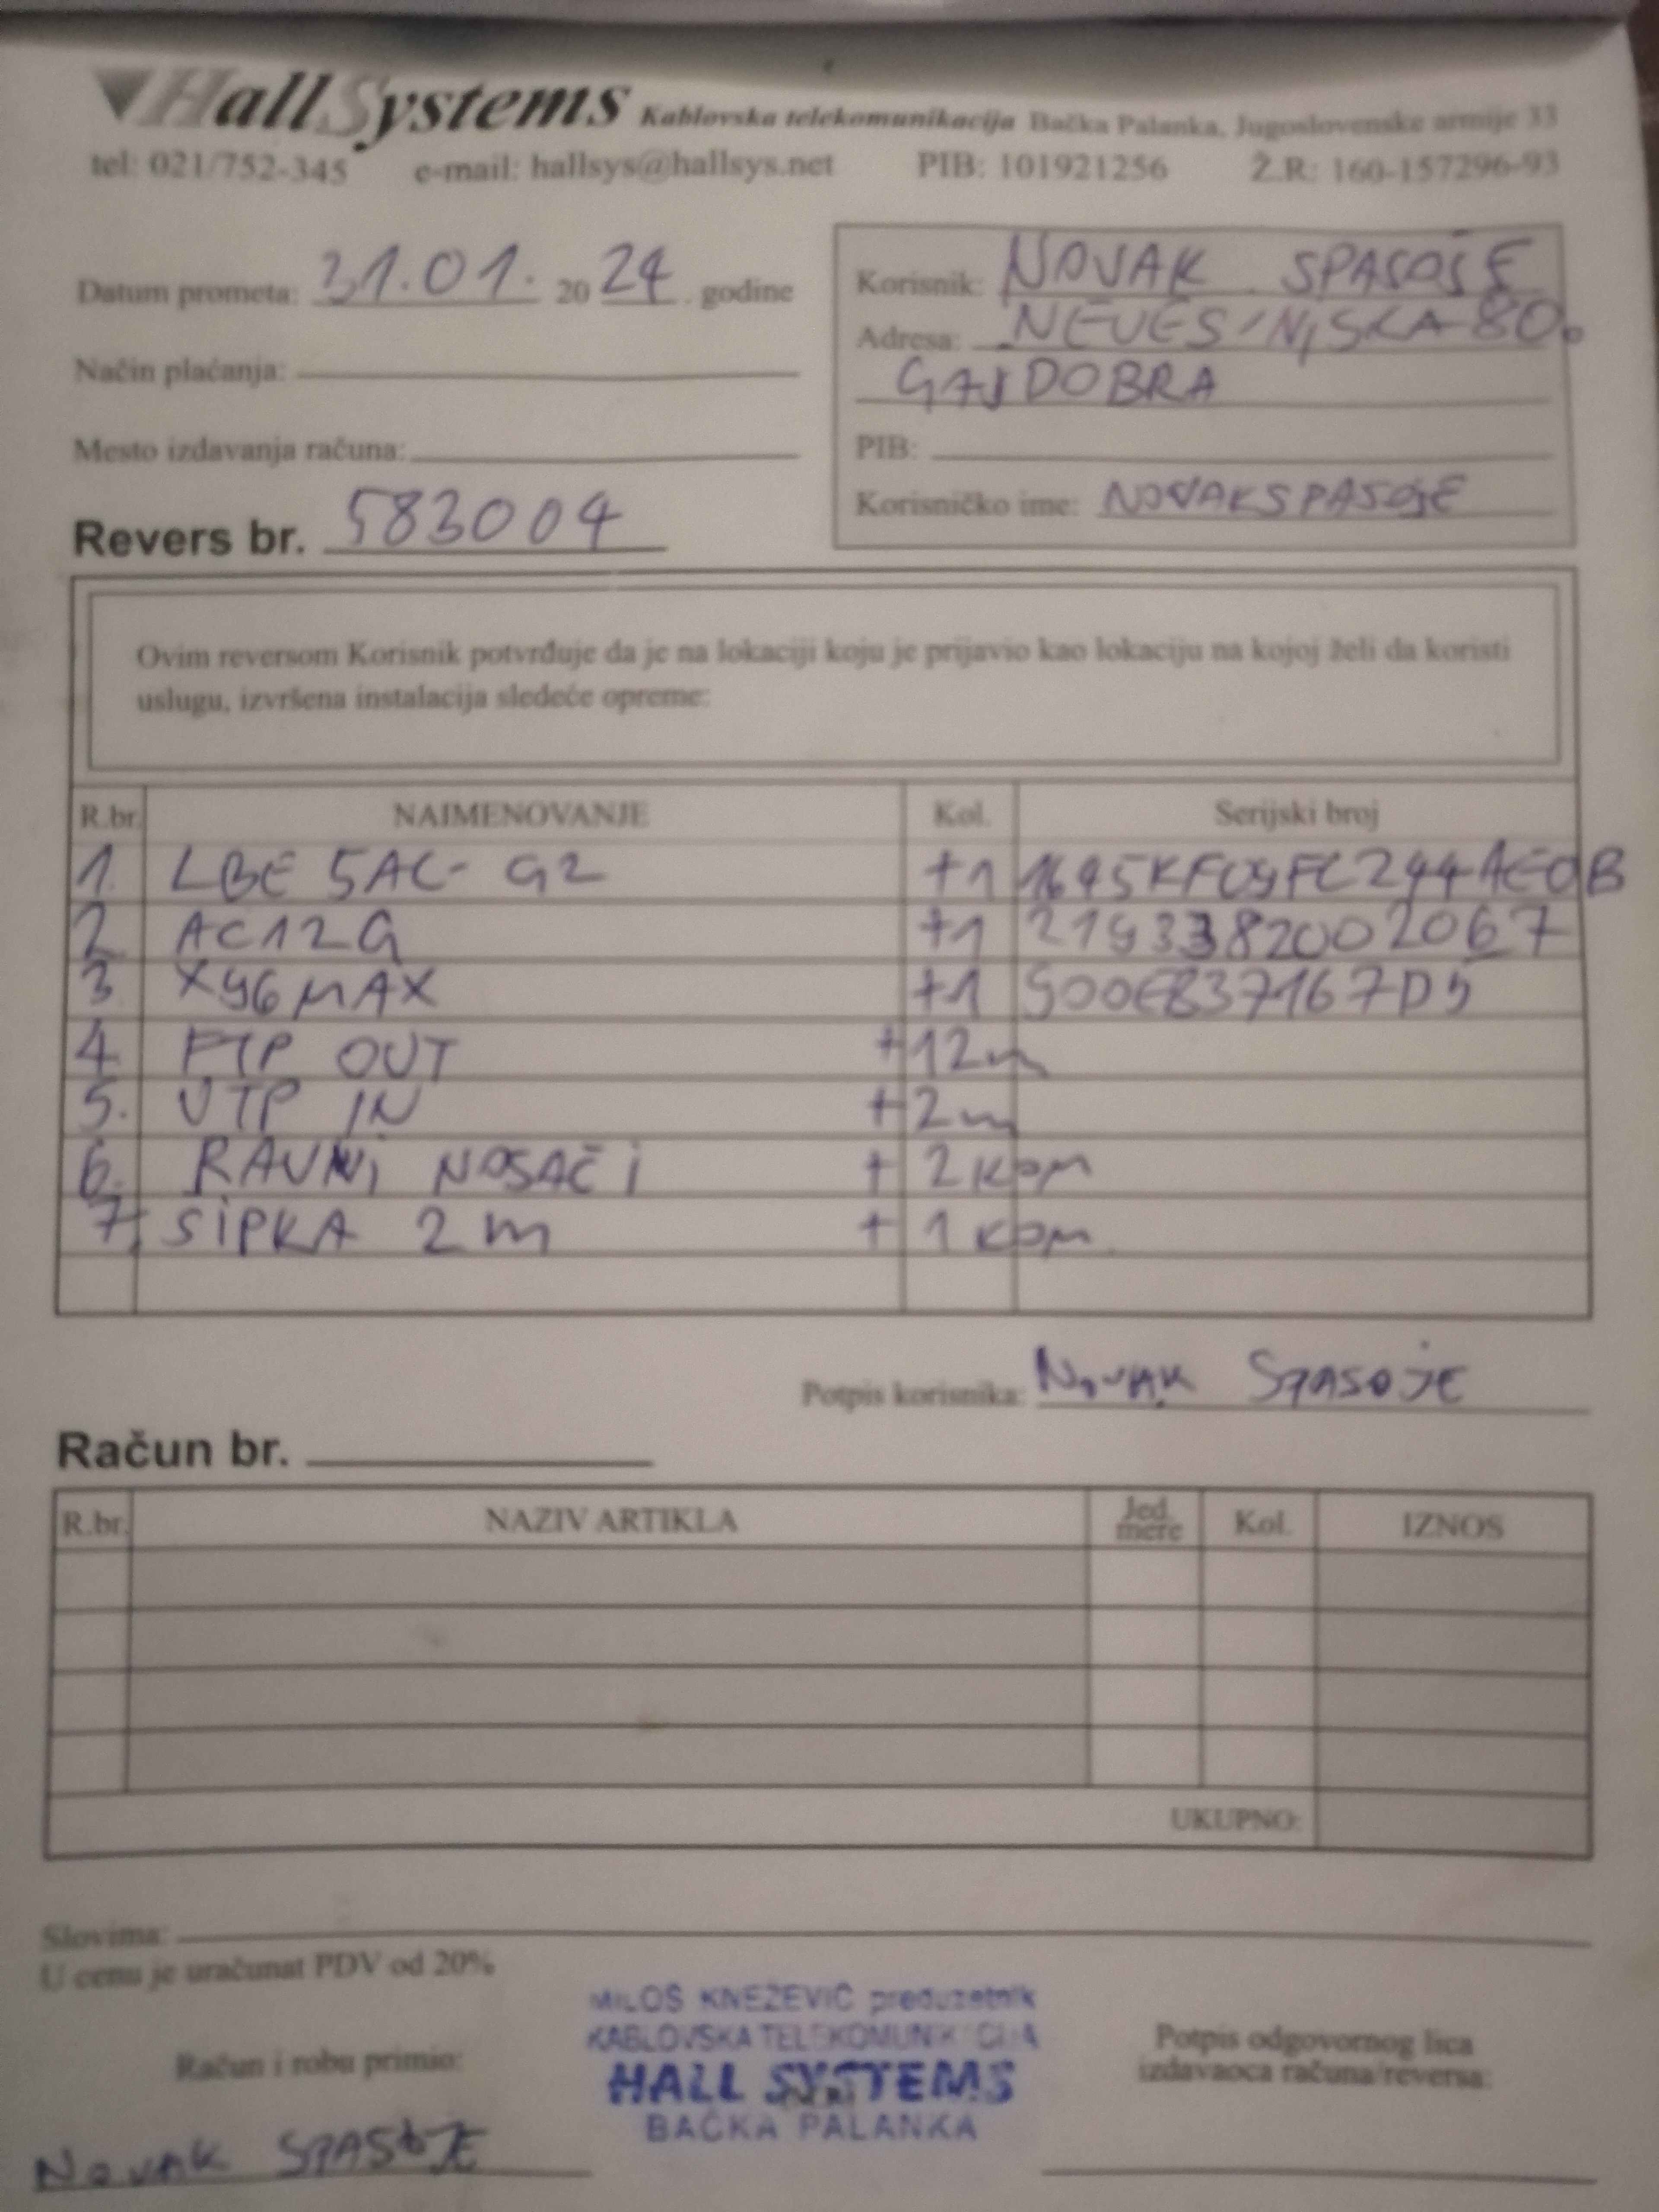 HallSystems Kablovska telekomunikacija Bačka Palanka, Jugoslovenske armije 33
tel: 021/752-345 e-mail: hallsys@hallsys.net PIB: 101921256 Ž.R: 160-157296-93
Datum prometa: 31.01. 2024. godine
Način plaćanja:
Mesto izdavanja računa:
Revers br. 583004
Korisnik: NOVAK SPASOJE
Adresa: NEVESINJSKA 80.
GAJDOBRA
PIB:
Korisničko ime: NOVAKSPASOJE
Ovim reversom Korisnik potvrđuje da je na lokaciji koju je prijavio kao lokaciju na kojoj želi da koristi
uslugu, izvršena instalacija sledeće opreme:
R.br. NAIMENOVANJE Kol. Serijski broj
1. LBE 5AC-G2 +1
2. AC12G +1 2193382002067
3. X96 MAX +1
4. FTP OUT +12m
5. UTP IN +2m
6. RAVNI NOSAČI + 2 kom
7. SIPKA 2m + 1 kom
Potpis korisnika: NOVAK SPASOJE
Račun br.
R.br. NAZIV ARTIKLA Jed. mere Kol. IZNOS
UKUPNO:
Slovima:
U cenu je uračunat PDV od 20%
MILOŠ KNEŽEVIĆ preduzetnik
KABLOVSKA TELEKOMUNIKACIJA
HALL SYSTEMS
BAČKA PALANKA
Račun i robu primio:
NOVAK SPASOJE
Potpis odgovornog lica
izdavaoca računa/reversa: